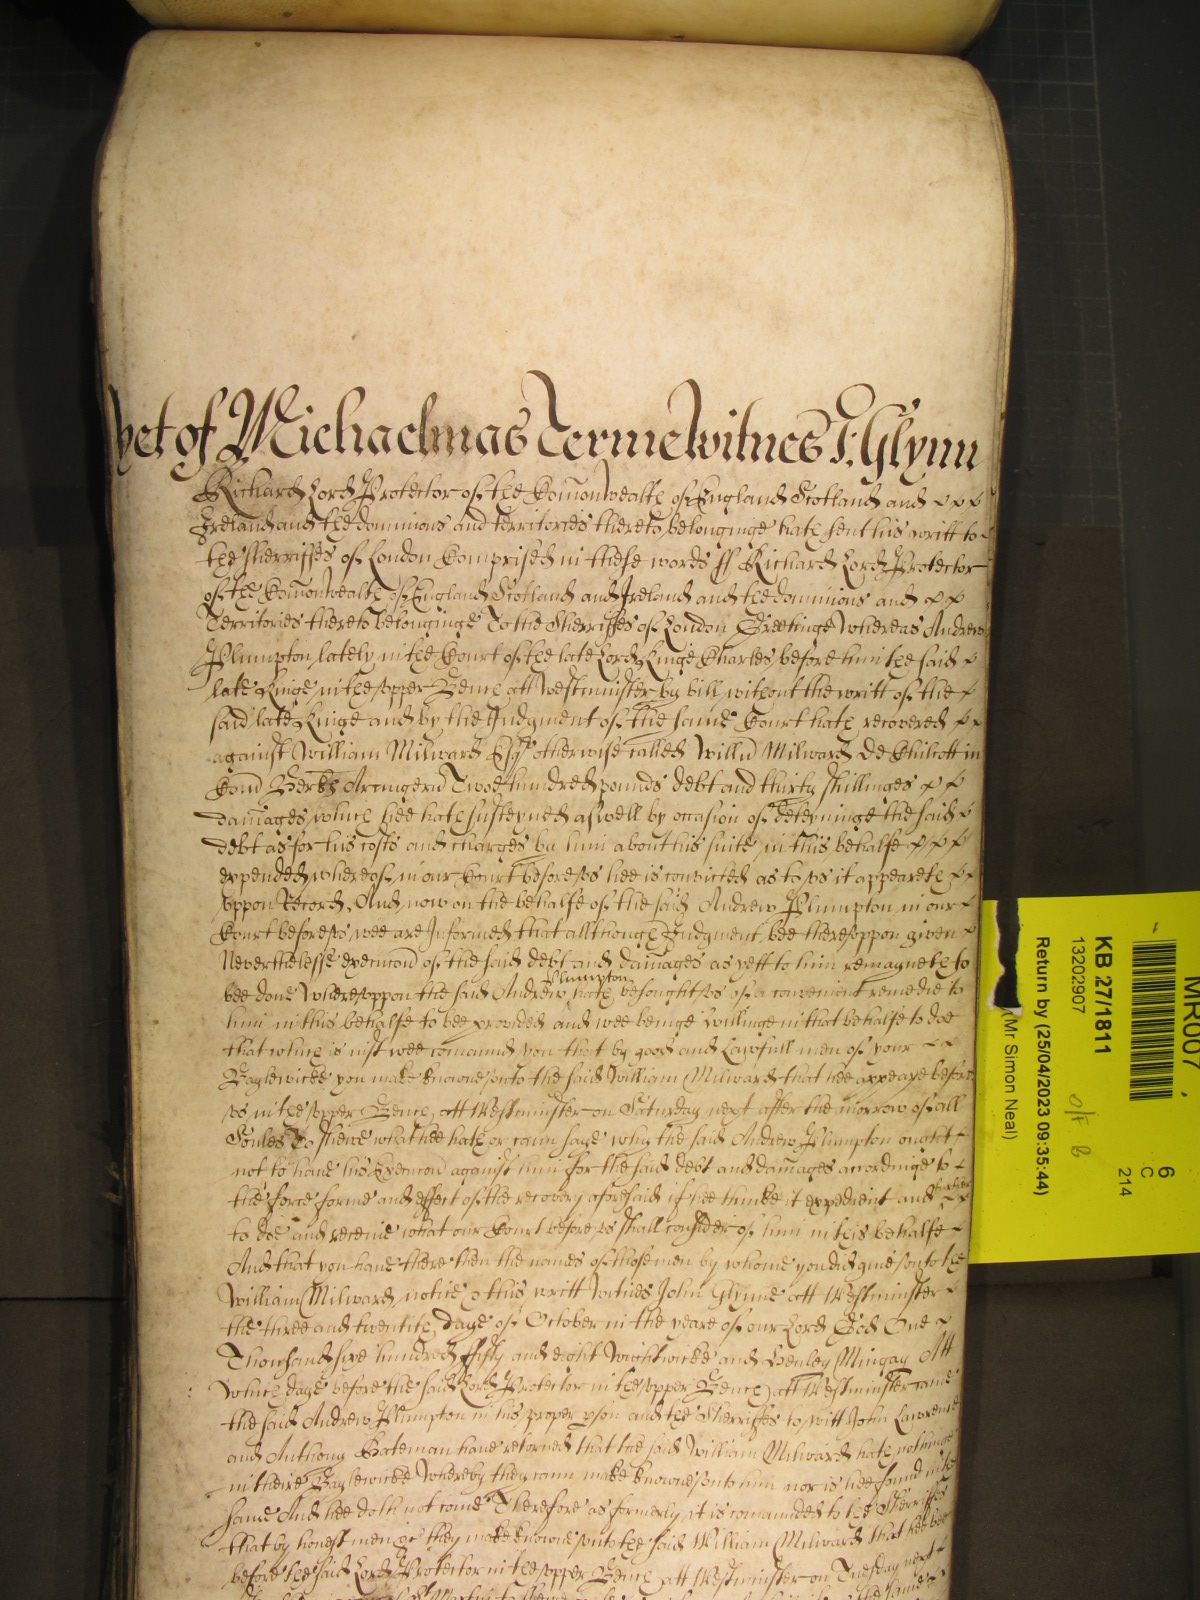 yet of Michaelmas Terme Witnes J: Glynn
Richard Lord Protector of the Comonwealth of England Scotland and
Ireland and the dominions and territories thereto belonginge hath sent his writt to
the Sherriffes of London Comprised in these words ss Richard Lord Protector
of the Comonwealth of England Scotland and Ireland and the dominions and
Territories thereto belonginge To the Sherriffes of London Greetinge Whereas Andrew
Plumpton lately in the Court of the late Lord Kinge Charles before him the said
late Kinge in the upper Bench att Westminster by bill without the writt of the
said late Kinge and by the Judgment of the same Court hath recovered
against William Milward Esqr otherwise called Willm Milward de Chilcott in
Com Armigerm Twoe hundred pounds debt and thirty shillinges
damages which hee hath susteyned aswell by occasion of deteyninge the said
debt as for his costs and charges by him about his suite in this behalfe
expended whereof in our Court before us hee is convicted as to us it appeareth
uppon Record, And now on the behalfe of the said Andrew Plumpton in our
Court before us wee are Informed that allthough Judgment bee thereuppon given
Neverthelesse execucon of the said debt and damages as yett to him remayneth to
bee done Whereuppon the said Andrew Plumpton hath besought us of a convenient remedie to
him in this behalfe to bee provided and wee beinge willinge in that behalfe to doe
that which is iust wee comaund you that by good and Lawfull men of your
Baylewicke you make knowne unto the said William Milward that hee appeare before
us in the upper Bench att Westminster on Saturday next after the morrow of all
Soules To shewe what hee hath or cann saye why the said Andrew Plumpton ought
not to have his Execucon against him for the said debt and damages accordinge to
the force forme and effect of the recovery aforesaid if hee thinke it expedient and further
to doe and receive what our Court before us shall consider of him in this behalfe
And that you have there then the names of those men by whome you did give unto the
William Milward notice & this writt Witnes John Glynne att Westminster
the three and twentith daye of October in the yeare of our Lord God One
Thousand sixe hundred fifty and eight Wightwicke and Henley Mingay Att
which daye before the said Lord Protector in the upper Bench att Westminster came
the said Andrew Plumpton in his proper pson and the Sherriffes to witt John Lawrence
and Anthony Bateman have retorned that the said William Milward hath nothinge
in theire Baylewicke Whereby they cann make knowne unto him nor is hee found in the
same And hee doth not come Therefore as formerly it is comaunded to the Sherriffes
that by honest men &c they make knowne unto the said William Milward that hee bee
before the said Lord Protector in the upper Bench att Westminster on Tuesday next
MR007
6
C
214
KB 27/1811
13202907
Return by (25/04/2023 09:35:44)
(Mr Simon Neal)